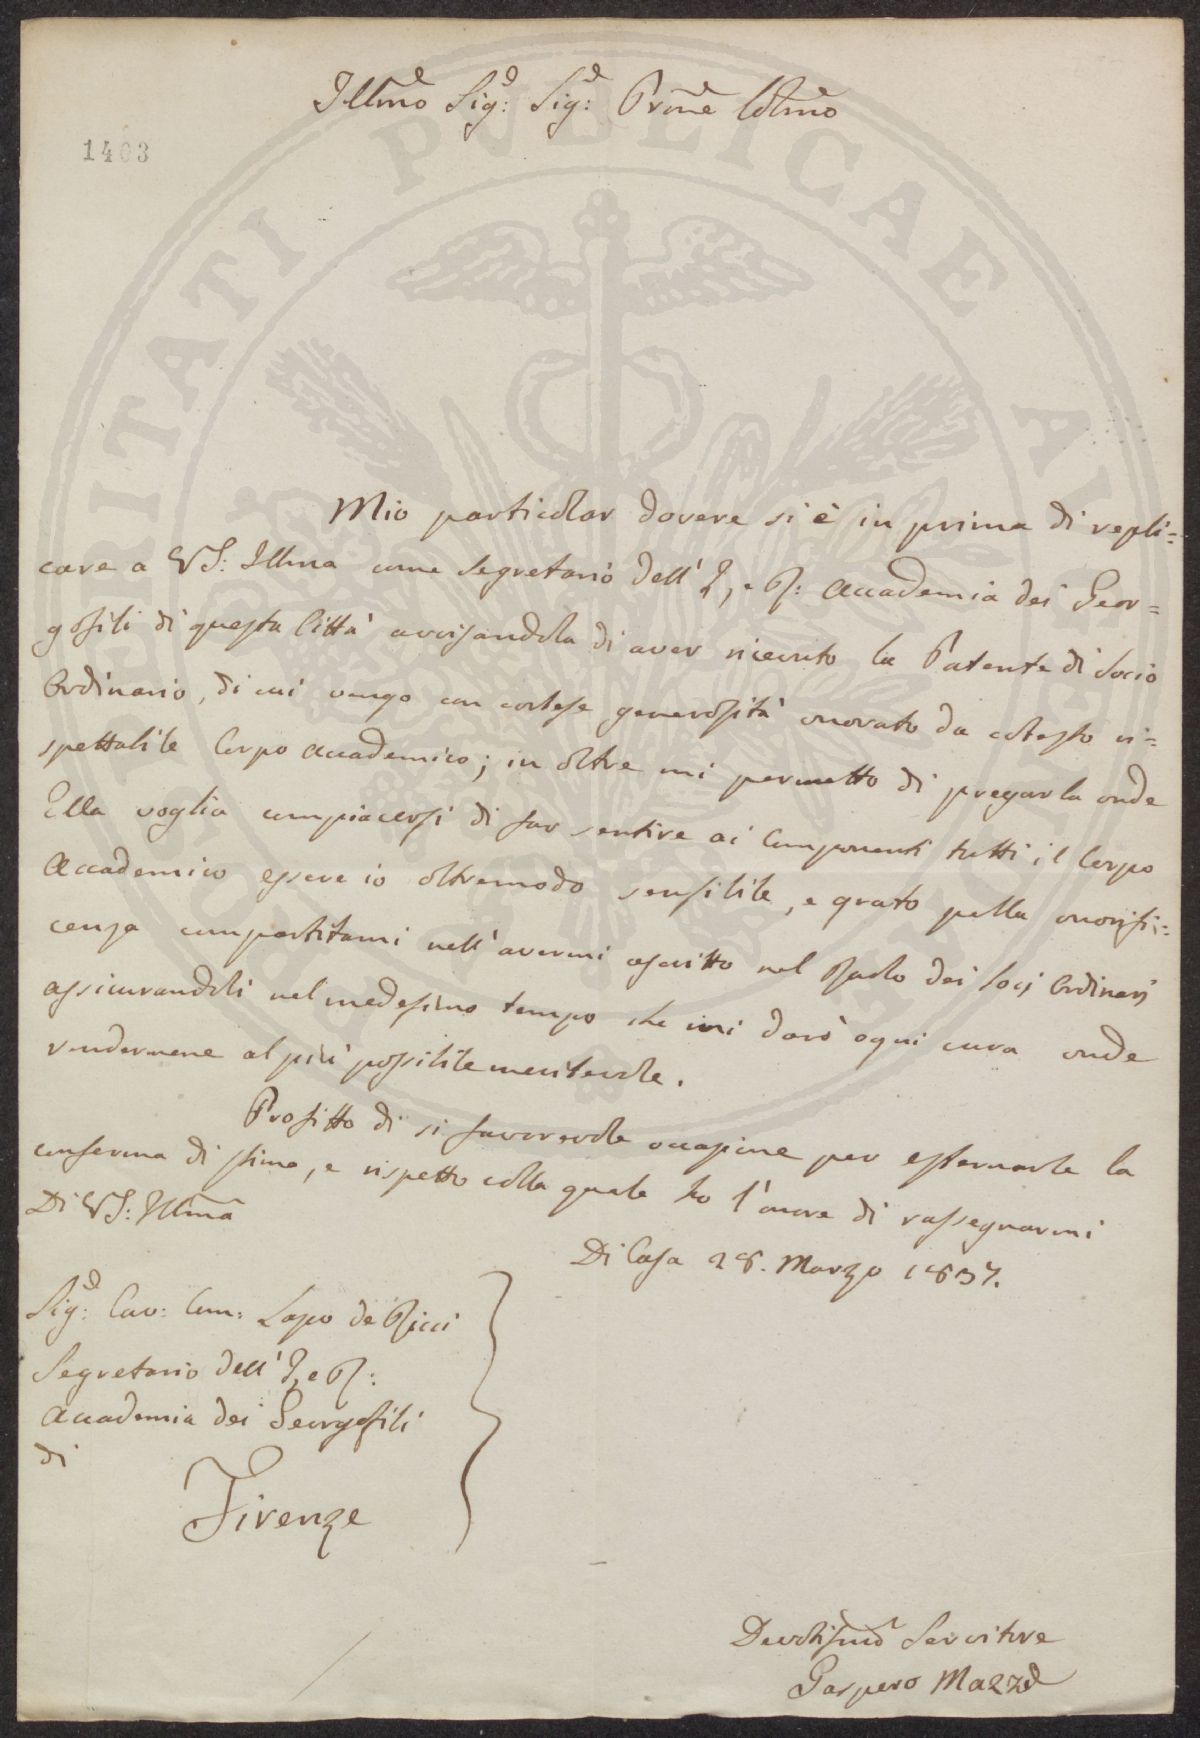 Illmo Sig: Sig: Prone Colmo
1403
Mio particolar dovere si è in prima di repli=
care a VS: Illma come Segretario dell' I, e R: Accademia dei Geor=
gofili di questa Città avvisandola di aver ricevuto la Patente di Socio
Ordinario, di cui vengo con cortese generosità onorato da cotesto ri=
spettabile Corpo Accademico; in oltre mi permetto di pregarla onde
Ella voglia compiacersi di far sentire ai Componenti tutti il Corpo
Accademico essere io oltremodo sensibile, e grato pella onorifi:=
cenza compartitami nell' avermi ascritto nel Ruolo dei Socj Ordinarj
assicurandoli nel medesimo tempo che mi darò ogni cura onde
rendermene al più possibile meritevole.
Profitto di si favorevole occasione per esternarle la
conferma di stima, e rispetto colla quale ho l'onore di rassegnarmi
Di VS: Illma
Di Casa 28. Marzo 1837.
Sig: Cav: Com: Lapo de Ricci
Segretario dell' I, e R:
Accademia dei Georgofili
di
Firenze
Devotissmo Servitore
Gaspero Mazzi
PROSPERITATI PUBLICAE AUGENDAE